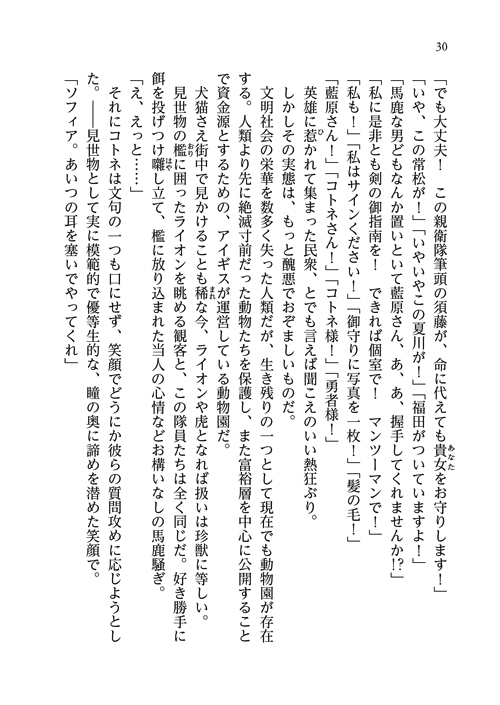 30
「でも大丈夫！　この親衛隊筆頭の須藤が、命に代えても貴女をお守りします！」
「いや、この常松が！」「いやいやこの夏川が！」「福田がついていますよ！」
「馬鹿な男どもなんか置いといて藍原さん、あ、あ、握手してくれませんか!?」
「私に是非とも剣の御指南を！　できれば個室で！　マンツーマンで！」
「私も！」「私はサインください！」「御守りに写真を一枚！」「髪の毛！」
「藍原さん！」「コトネさん！」「コトネ様！」「勇者様！」
英雄に惹かれて集まった民衆、とでも言えば聞こえのいい熱狂ぶり。
しかしその実態は、もっと醜悪でおぞましいものだ。
文明社会の栄華を数多く失った人類だが、生き残りの一つとして現在でも動物園が存在
する。人類より先に絶滅寸前だった動物たちを保護し、また富裕層を中心に公開すること
で資金源とするための、アイギスが運営している動物園だ。
犬猫さえ街中で見かけることも稀な今、ライオンや虎となれば扱いは珍獣に等しい。
見世物の檻に囲ったライオンを眺める観客と、この隊員たちは全く同じだ。好き勝手に
餌を投げつけ囃し立て、檻に放り込まれた当人の心情などお構いなしの馬鹿騒ぎ。
「え、えっと……」
それにコトネは文句の一つも口にせず、笑顔でどうにか彼らの質問攻めに応じようとし
た。――見世物として実に模範的で優等生的な、瞳の奥に諦めを潜めた笑顔で。
「ソフィア。あいつの耳を塞いでやってくれ」
あなた
ひ
まれ
おり
はや